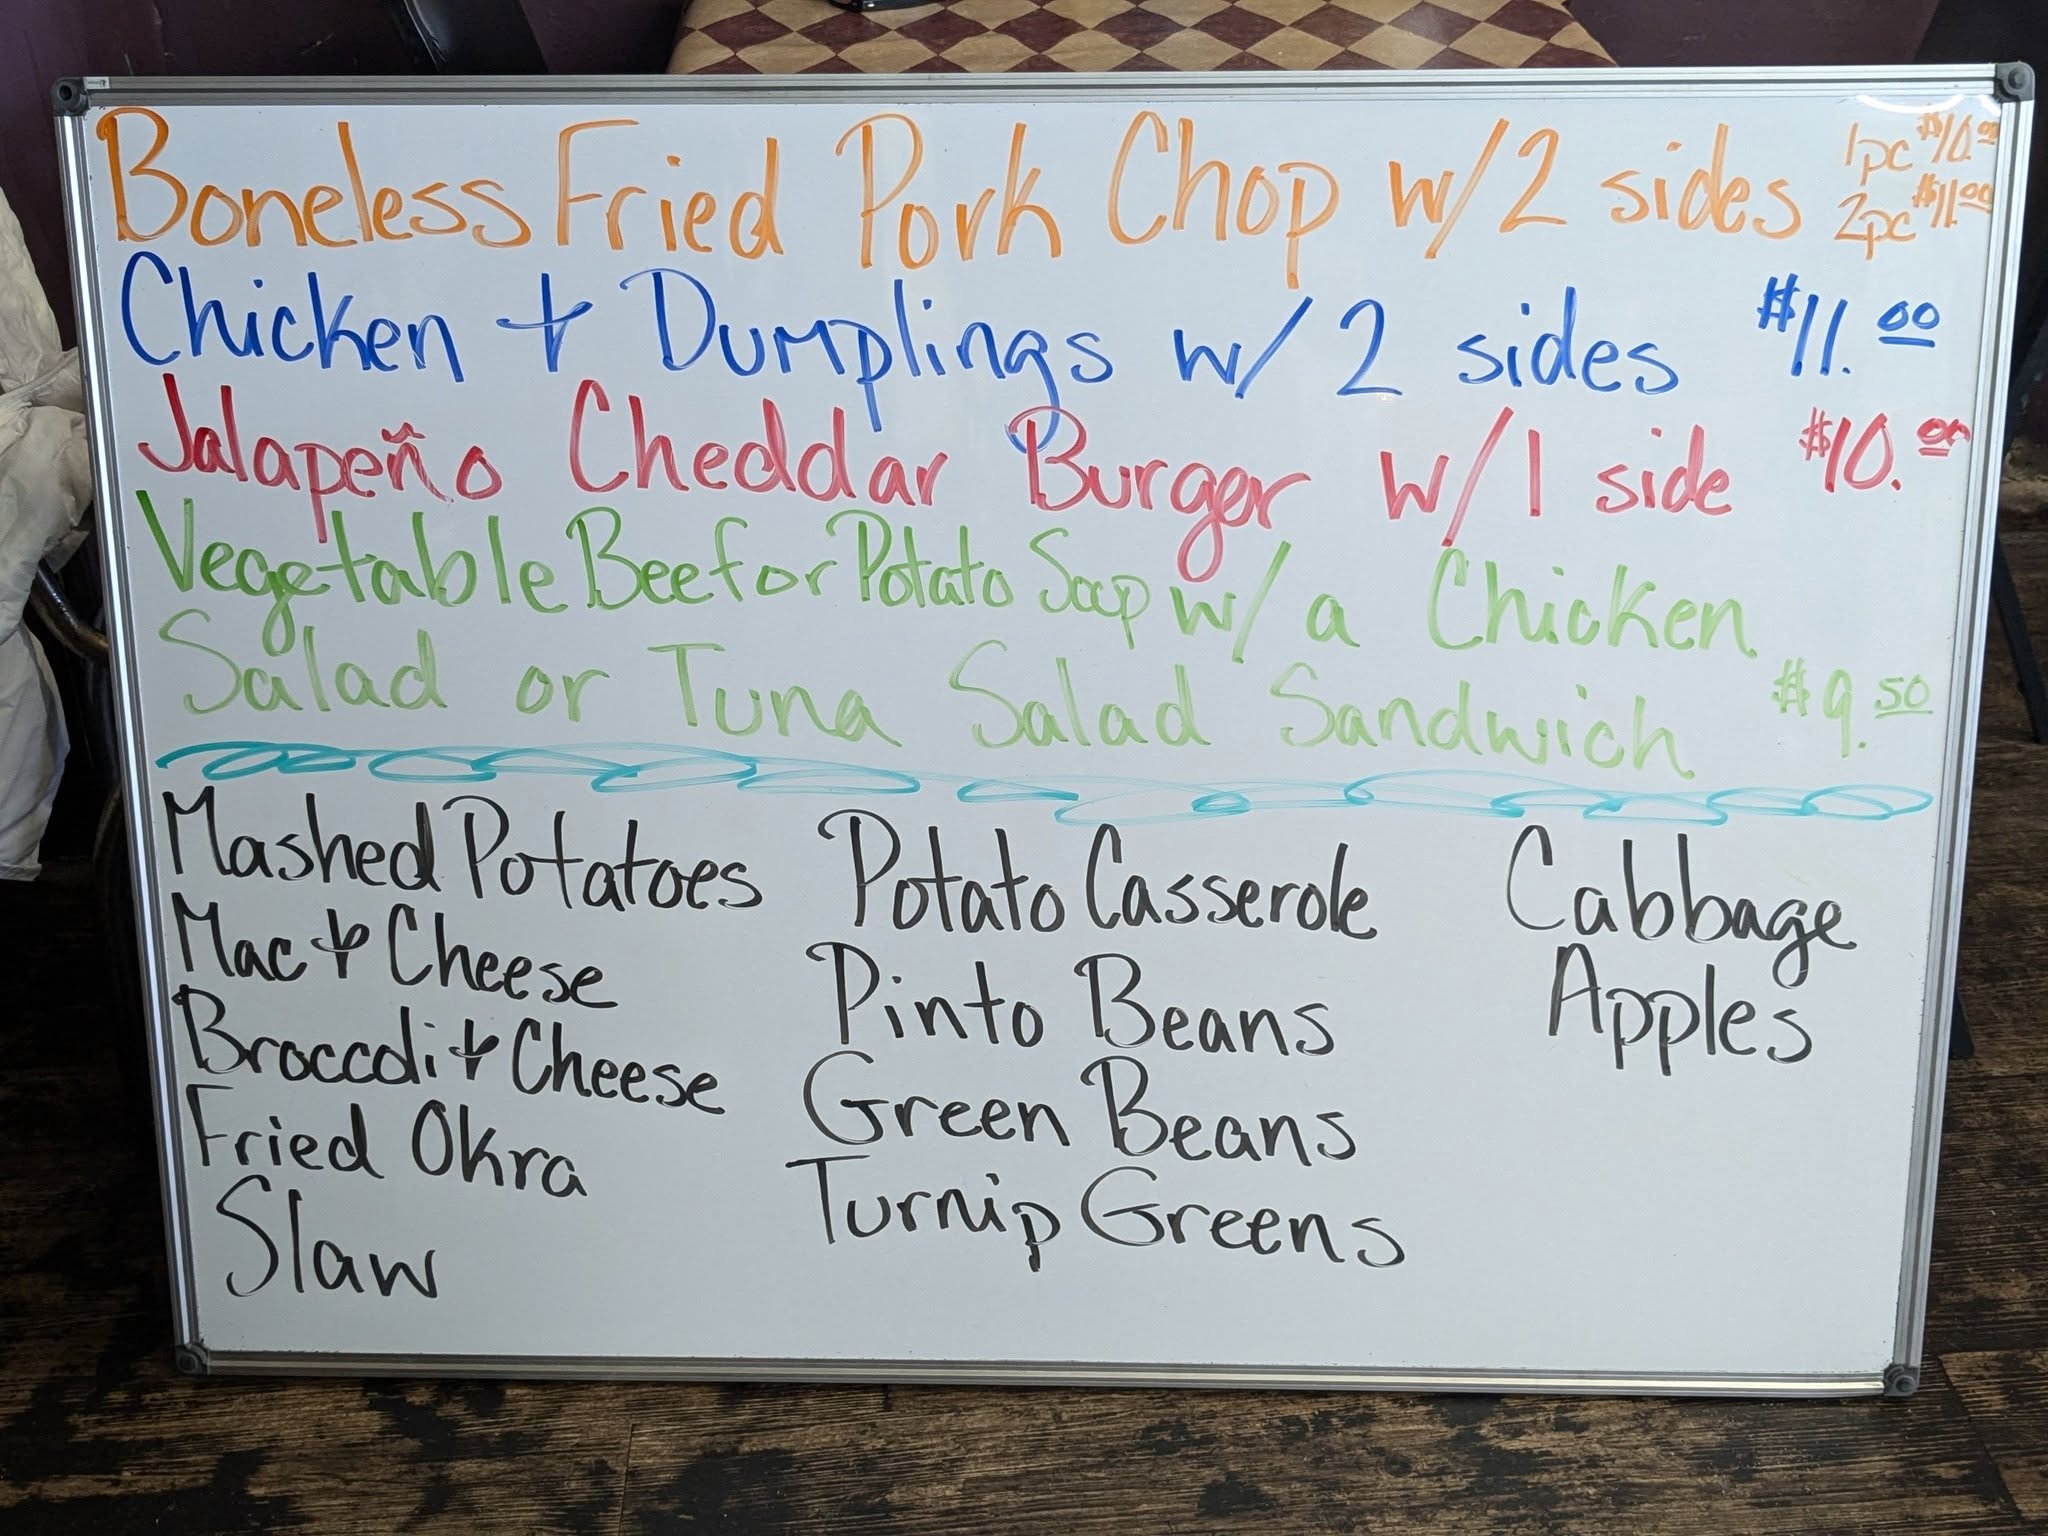 Boneless Fried Pork Chop w/2 sides 1pc $10.00
2pc $11.00
Chicken + Dumplings w/ 2 sides $11.00
Jalapeño Cheddar Burger w/1 side $10.00
Vegetable Beef or Potato Soup w/ a Chicken
Salad or Tuna Salad Sandwich $9.50
Mashed Potatoes
Mac + Cheese
Broccoli + Cheese
Fried Okra
Slaw
Potato Casserole
Pinto Beans
Green Beans
Turnip Greens
Cabbage
Apples